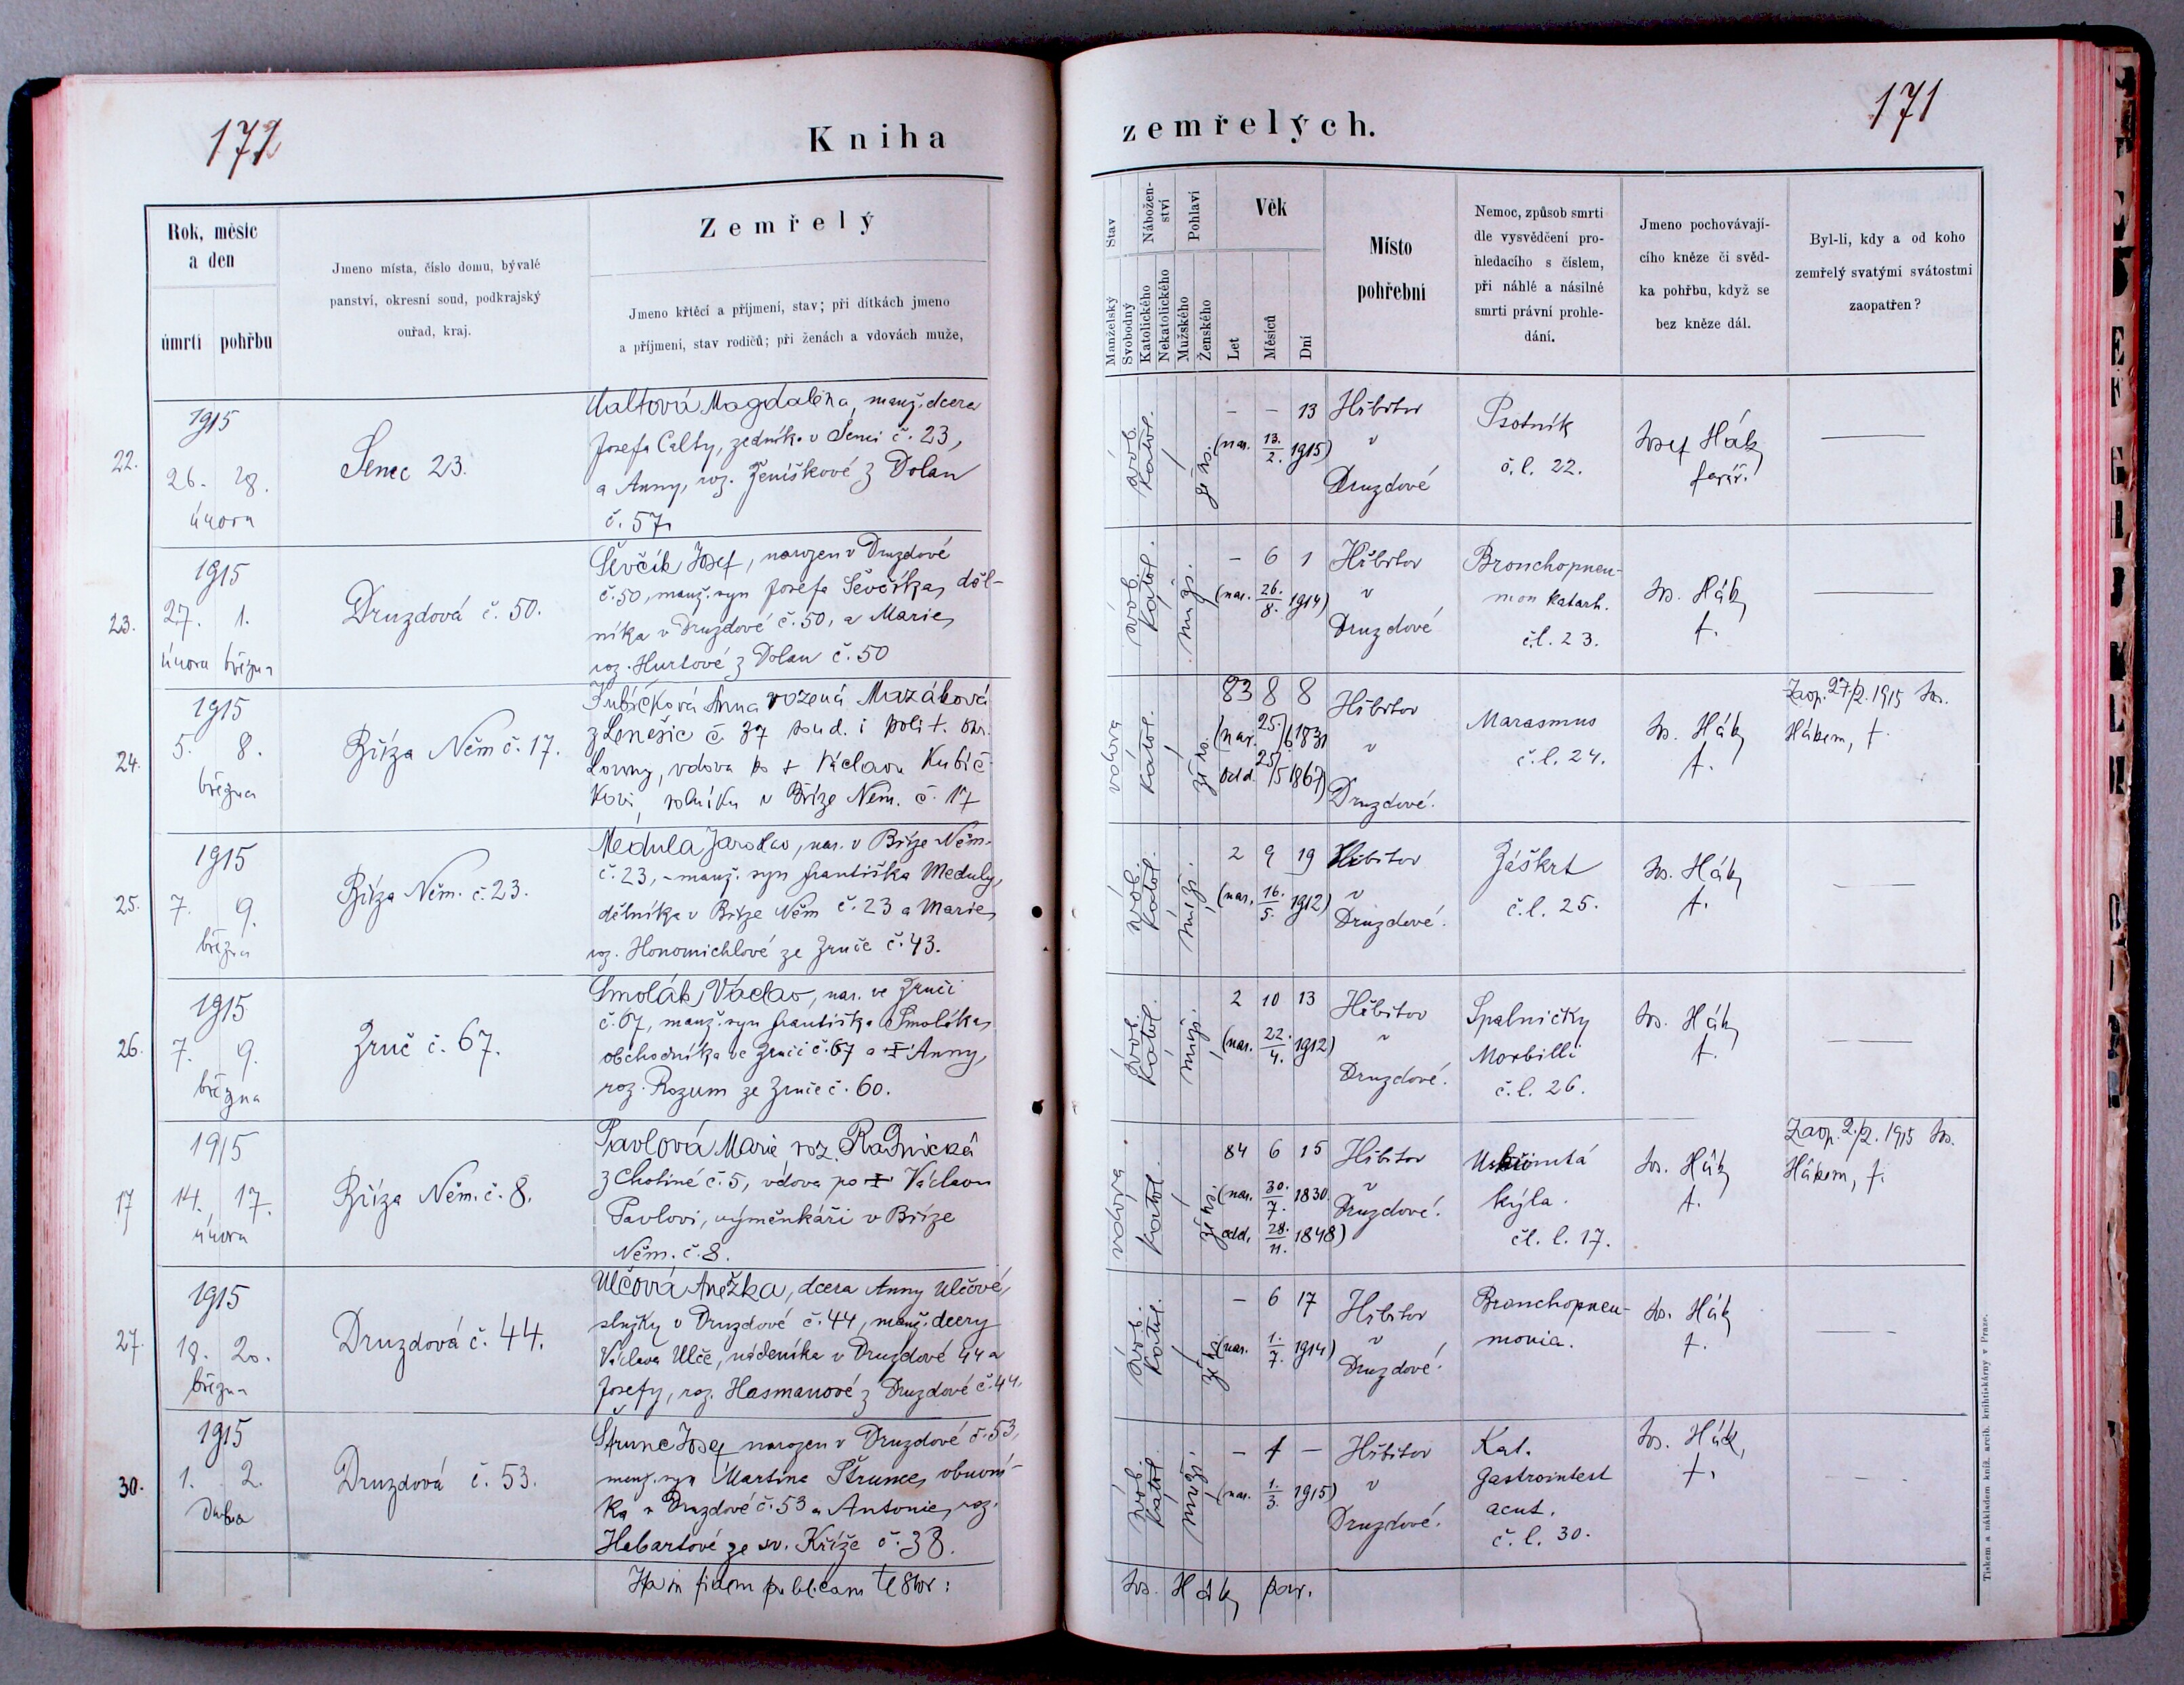 171
Kniha
zemřelých.
171
Rok, měsíc
a den
úmrtí
pohřbu
Jmeno místa, číslo domu, bývalé
panství, okresní soud, podkrajský
ouřad, kraj.
Zemřelý
Jmeno křtěcí a příjmení, stav; při dítkách jmeno
a příjmení, stav rodičů; při ženách a vdovách muže,
Stav
Manželský
Svobodný
Nábožen-
ství
Katolického
Nekatolického
Pohlaví
Mužského
Ženského
Věk
Let
Měsíců
Dní
Místo
pohřební
Nemoc, způsob smrti
dle vysvědčení pro-
hledacího s číslem,
při náhlé a násilné
smrti právní prohle-
dání.
Jmeno pochovávají-
cího kněze či svěd-
ka pohřbu, když se
bez kněze dál.
Byl-li, kdy a od koho
zemřelý svatými svátostmi
zaopatřen?
22.
1915
26. 28.
února
Senec 23.
Magdalena, manž. dcera
Josefa Calty, zedníka v Senci č. 23,
a Anny, roz. Ženíškové z Dolan
č. 57.
svob.
katol.
žens.
- - 13
(nar. 13./2. 1915)
Hřbitov
v
Druzdové
Psotník
č. l. 22.
Josef Hák,
farář.
23.
1915
27. 1.
února března
Druzdová č. 50.
Ševčík Josef, narozen v Druzdové
č. 50, manž. syn Josefa Ševčíka, děl-
níka v Druzdové č. 50, a Marie,
roz. Hurtové z Dolan č. 50
svob.
katol.
mužs.
- 6 1
(nar. 26./8. 1914)
Hřbitov
v
Druzdové
Bronchopneu-
mon katarh.
č.l. 23.
Jos. Hák,
f.
24.
1915
5. 8.
března
Bříza Něm č. 17.
Kubíčková Anna rozená Mazáková
z Lenešic č. 37 soud. i polit. okr.
Louny, vdova po + Václavu Kubíč-
kovi, rolníku v Bříze Něm. č. 17
vdova
katol.
žens.
83 8 8
(nar. 25/6 1831
odd. 25/5 1867)
Hřbitov
v
Druzdové.
Marasmus
č. l. 24.
Jos. Hák,
f.
Zaop. 27/2. 1915 Jos.
Hákem, f.
25.
1915
7. 9.
března
Bříza Něm. č. 23.
Medula Jaroslav, nar. v Bříze Něm.
č. 23, manž. syn Františka Meduly,
dělníka v Bříze Něm č. 23 a Marie,
roz. Honomichlové ze Zruče č. 43.
svob.
katol.
mužs.
2 9 19
(nar. 16./5. 1912)
Hřbitov
v
Druzdové.
Záškrt
č. l. 25.
Jos. Hák,
f.
26.
1915
7. 9.
března
Zruč č. 67.
Smolák Václav, nar. ve Zruči
č. 67, manž. syn Františka Smoláka,
obchodníka ve Zruči č. 67 a Anny,
roz. Rozum ze Zruče č. 60.
svob.
katol.
mužs.
2 10 13
(nar. 22./4. 1912)
Hřbitov
v
Druzdové.
Spalničky
Morbilli
č. l. 26.
Jos. Hák,
f.
17
1915
14. 17.
února
Bříza Něm. č. 8.
Pavlová Marie roz. Radnická
z Chotiné č. 5, vdova po + Václavu
Pavlovi, výměnkáři v Bříze
Něm. č. 8.
vdova.
katol.
žens.
84 6 15
(nar. 30./7. 1830.
odd. 28./11. 1848)
Hřbitov
v
Druzdové.
Uskřinutá
kýla.
čl. l. 17.
Jos. Hák,
f.
Zaop. 2./2. 1915 Jos.
Hákem, f.
27.
1915
18. 20.
března
Druzdová č. 44.
Ulčová Anežka, dcera Anny Ulčové,
služky v Druzdové č. 44, manž. dcery
Václava Ulče, nádeníka v Druzdové 44 a
Josefy, roz. Hasmanové z Druzdové č. 44.
svob.
katol.
žens.
- 6 17
(nar. 1./7. 1914)
Hřbitov
v
Druzdové.
Bronchopneu-
monia.
Jos. Hák,
f.
30.
1915
1. 2.
dubna
Druzdová č. 53.
Štrunc Josef narozen v Druzdové č. 53,
manž. syn Martina Štrunce, obuvní-
ka v Druzdové č. 53 a Antonie, roz.
Hebartové ze sv. Kříže č. 38.
svob.
katol.
mužs.
- 1 -
(nar. 1./3. 1915)
Hřbitov
v
Druzdové.
Kat.
gastrointest
acut.
č. l. 30.
Jos. Hák,
f.
Ita in fidem publicam testor:
Jos. Hák, par.
Tiskem a nákladem kníž. arcib. knihtiskárny v Praze.